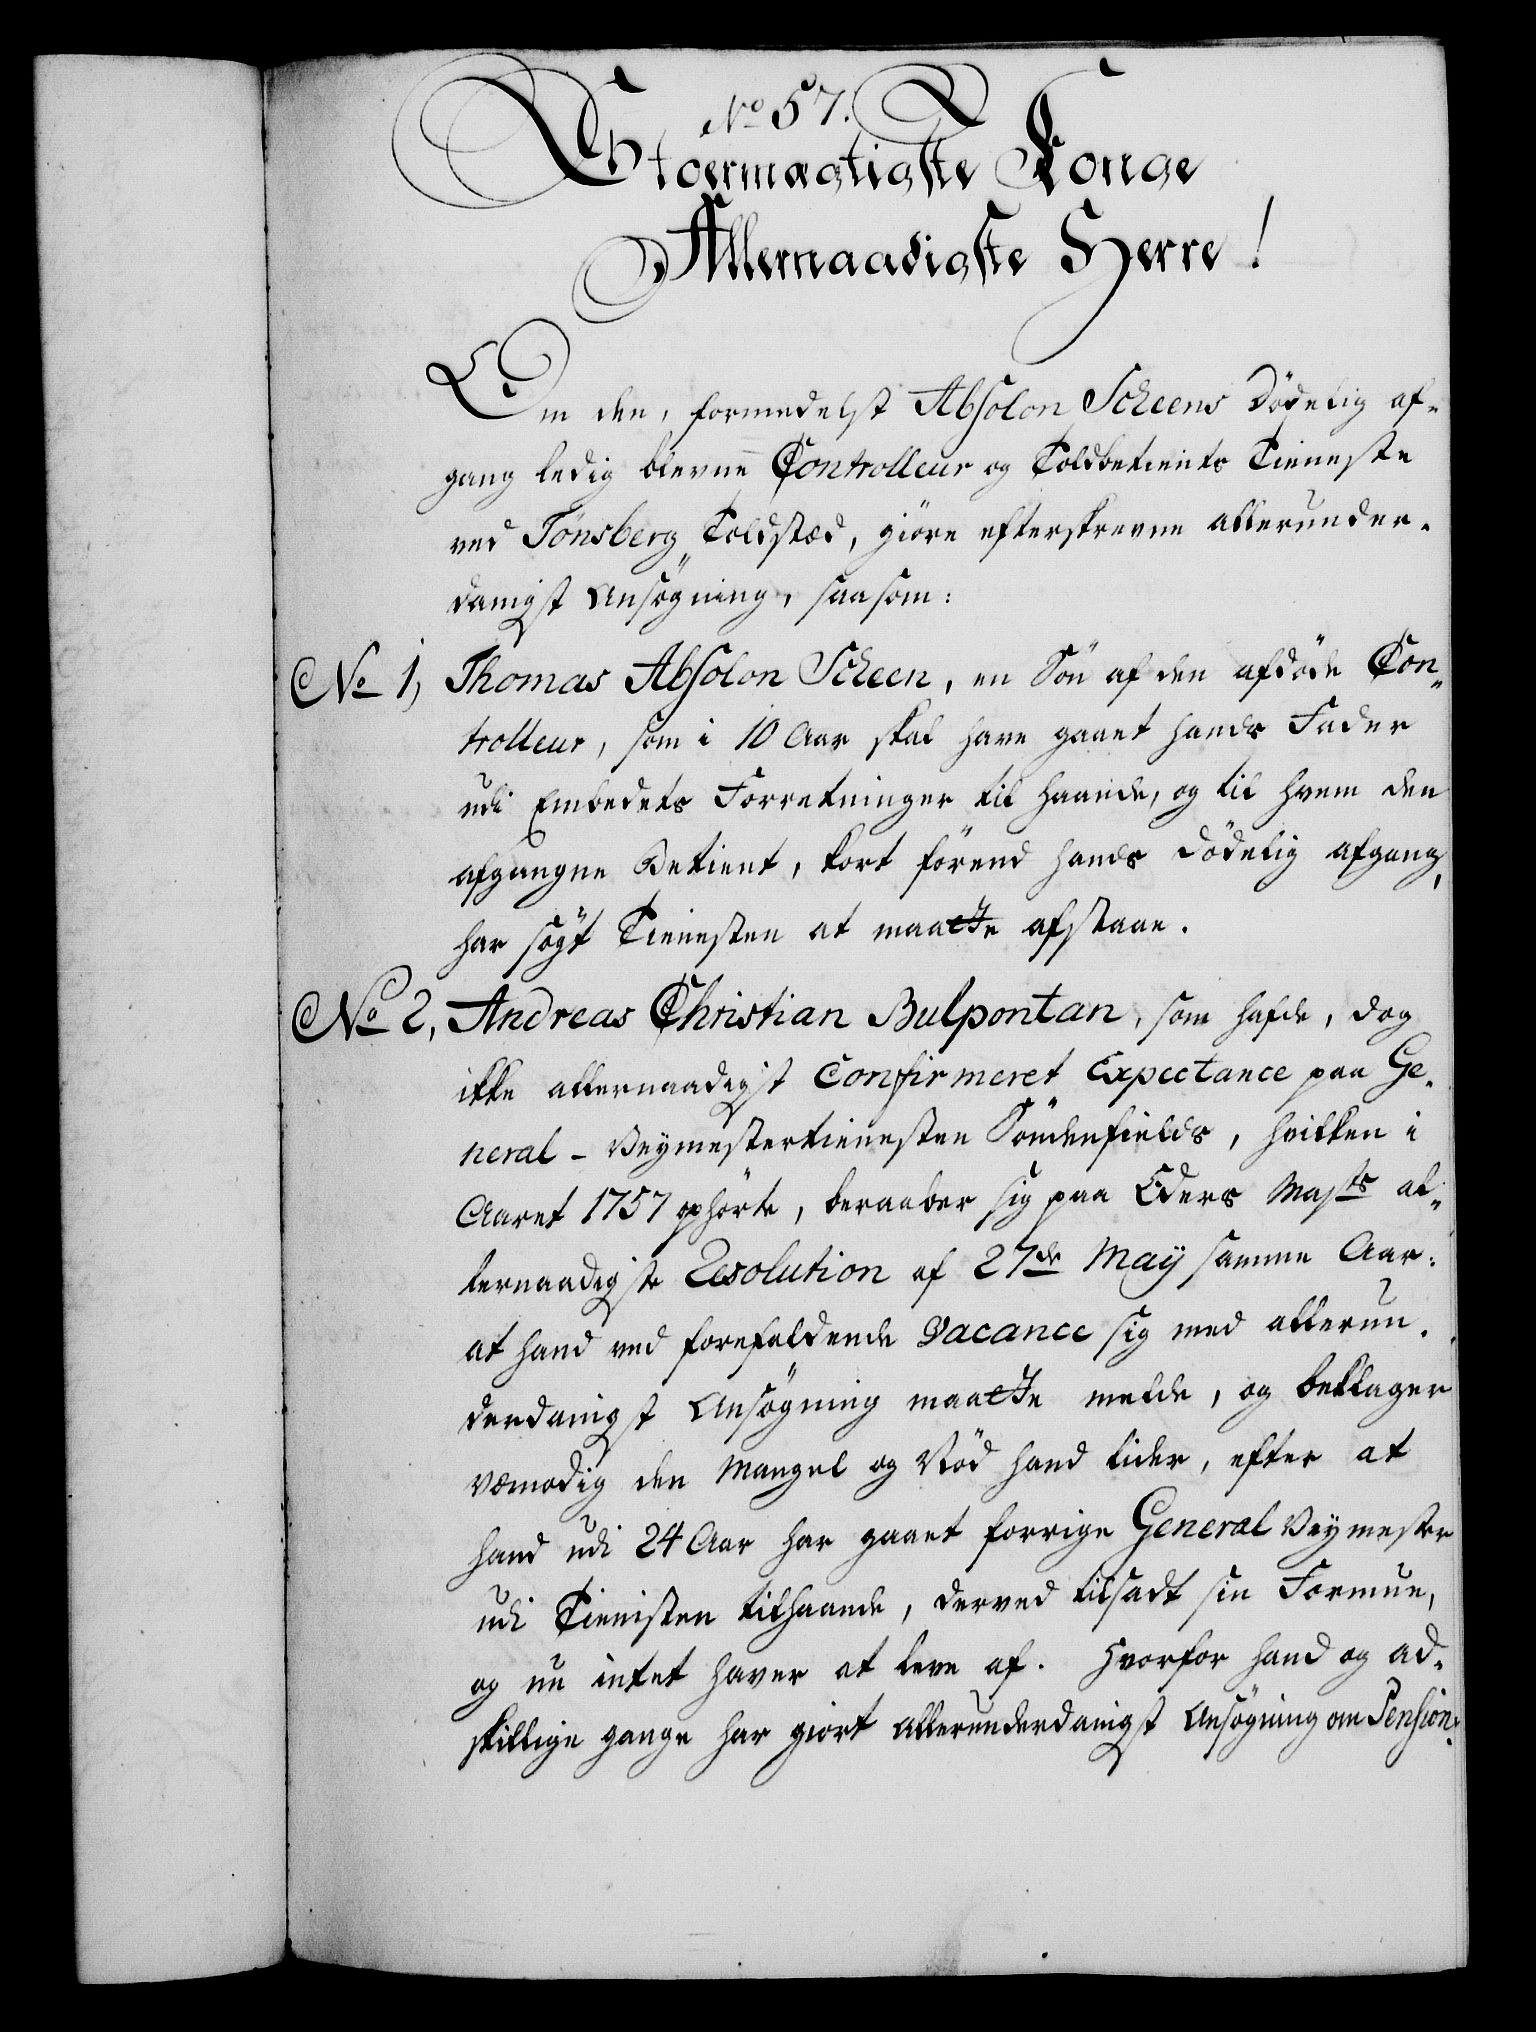 No 57.
Stoermægtigste Konge
Allernaadigste Herre!
Om den, formedelst Absolon Scheens Dödelig af-
gang ledig blevne Controlleur og Toldbetients Tieneste
ved Tönsberg Toldstæd, giöre efterskrevne allerunder-
danigst Ansögning, saasom:
No 1, Thomas Absolon Scheen, en Sön af den afdöde Con-
trolleur, som i 10 Aar skal have gaaet hands Fader
udi Embedets Forretninger til haande, og til hvem den
afgangne Betient, kort förend hands Dödelig afgang,
har sögt Tienesten at maatte afstaae.
No 2, Andreas Christian Bulpontan, som hafde, dog
ikke allernaadigst Confirmeret Expectance paa Ge-
neral-Veymestertienesten Söndenfields, hvilken i
Aaret 1757 ophörte, beraaber sig paa Eders Majts al-
lernaadigste Resolution af 27de Maij samme Aar:
at hand ved forefaldende Vacance sig med allerun-
derdanigst Ansögning maatte melde, og beklager
væmodig den Mangel og Nöd hand lider, efter at
hand udi 24 Aar har gaaet forrige General Veymester
udi Tienisten tilhaande, derved tilsadt sin Formue,
og nu intet haver at leve af. Hvorfor hand og ad-
skillige gange har giort allerunderdanigst Ansögning om Pension.